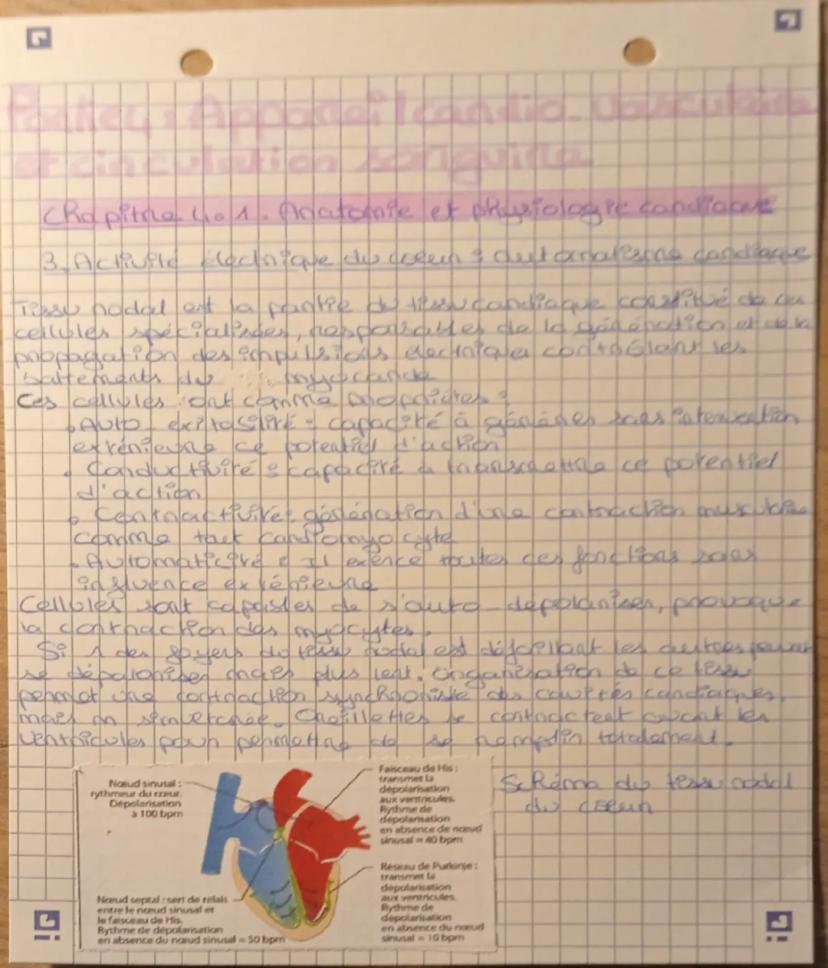 Partie 4 : Appareil cardio-vasculaire
et circulation sanguine
Chapitre 4.1. Anatomie et physiologie cardiaque
3. Activité électrique du coeur : automatisme cardiaque
Tissu nodal est la partie du tissu cardiaque constitué de
cellules spécialisées, responsables de la génération et de la
propagation des impulsions électriques contrôlant les
battements du myocarde
Ces cellules ont comme propriétés :
. Auto-exitabilité = capacité à générer sans intervention
extérieure ce potentiel d'action
. Conductivité : capacité à transmettre ce potentiel
d'action
. Contractivité : génération d'une contraction musculaire
comme tout cardiomyocyte
. Automaticité : Il exerce toutes ces fonctions sans
influence extérieure
Cellules sont capables de s'auto-dépolariser, provoque
la contraction des myocytes.
Si 1 des foyers du tissu nodal est défaillant les autres peuvent
se dépolariser mais plus lent. Organisation de ce tissu
permet une contraction synchronisée des cavités cardiaques,
mais en . Oreillettes se contractent avant les
ventricules pour permettre de se remplir totalement.
Nœud sinusal :
rythmeur du cœur.
Dépolarisation
à 100 bpm
Nœud septal : sert de relais
entre le nœud sinusal et
le faisceau de His.
Rythme de dépolarisation
en absence du nœud sinusal = 50 bpm
Faisceau de His :
transmet la
dépolarisation
aux ventricules.
Rythme de
dépolarisation
en absence de nœud
sinusal = 40 bpm
Réseau de Purkinje :
transmet la
dépolarisation
aux ventricules.
Rythme de
dépolarisation
en absence du nœud
sinusal = 10 bpm
Schéma du tissu nodal
du coeur